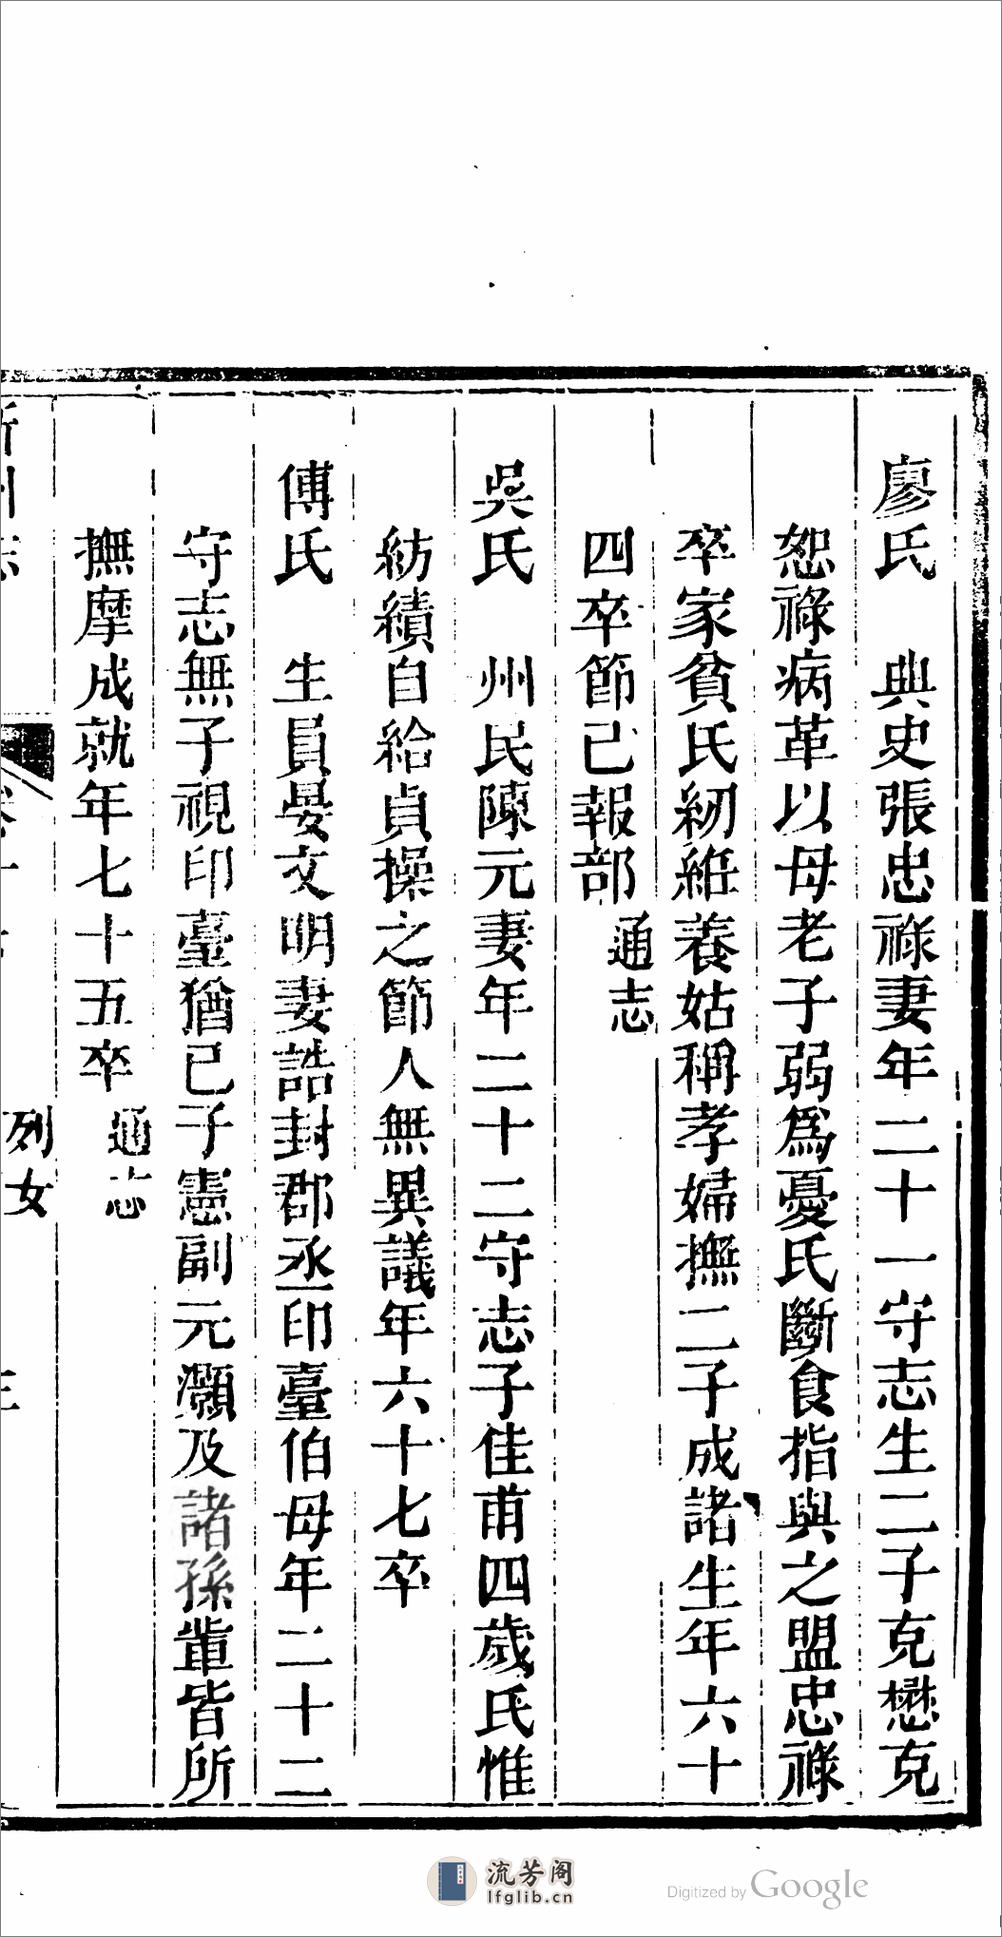 廖氏　典史張忠祿妻年二十一守志生二子克懋克
恕祿病革以母老子弱爲憂氏斷食指與之盟忠祿
卒家貧氏紉絍養姑稱孝婦撫二子成諸生年六十
四卒節已報部通志
吳氏　州民陳元妻年二十二守志子佳甫四歲氏惟
紡績自給貞操之節人無異議年六十七卒
傅氏　生員晏文明妻誥封郡丞印臺伯母年二十二
守志無子視印臺猶已子憲副元灝及諸孫輩皆所
撫摩成就年七十五卒通志
列女
流芳阁
lfglib.cn
Digitized by Google